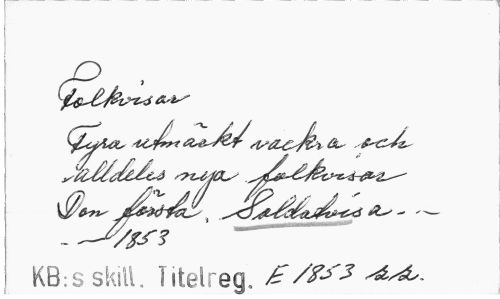 Folkvisor
Fyra utmärkt vackra och
alldeles nya folkvisor
Den första. Soldatvisa - -
- - 1853
KB:s skill. Titelreg. E 1853 kk.